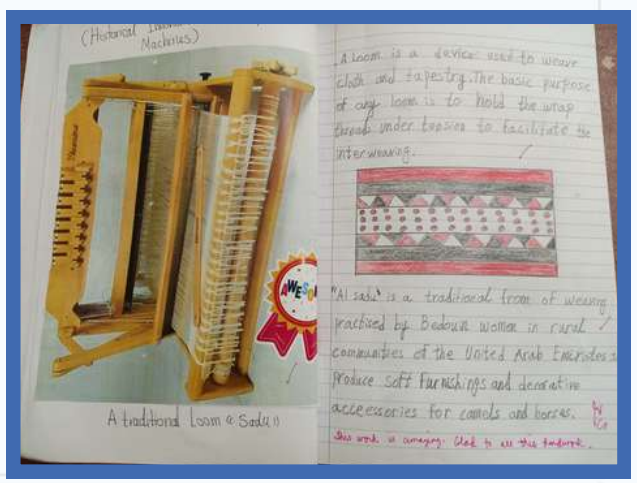 (Historical
Machines)
AWESO
A traditional Loom « Sadu »
A Loom is a device used to weave
cloth and tapestry. The basic purpose
of any loom is to hold the wrap
threads under tension to facilitate the
interweaving.
"Al sadu" is a traditional from of weaving
practised by Bedouin women in rural
communities of the United Arab Emirates
produce soft Furnishings and decorative
acceessories for camels and horses.
This work is amazing. Glad to see this handwork.